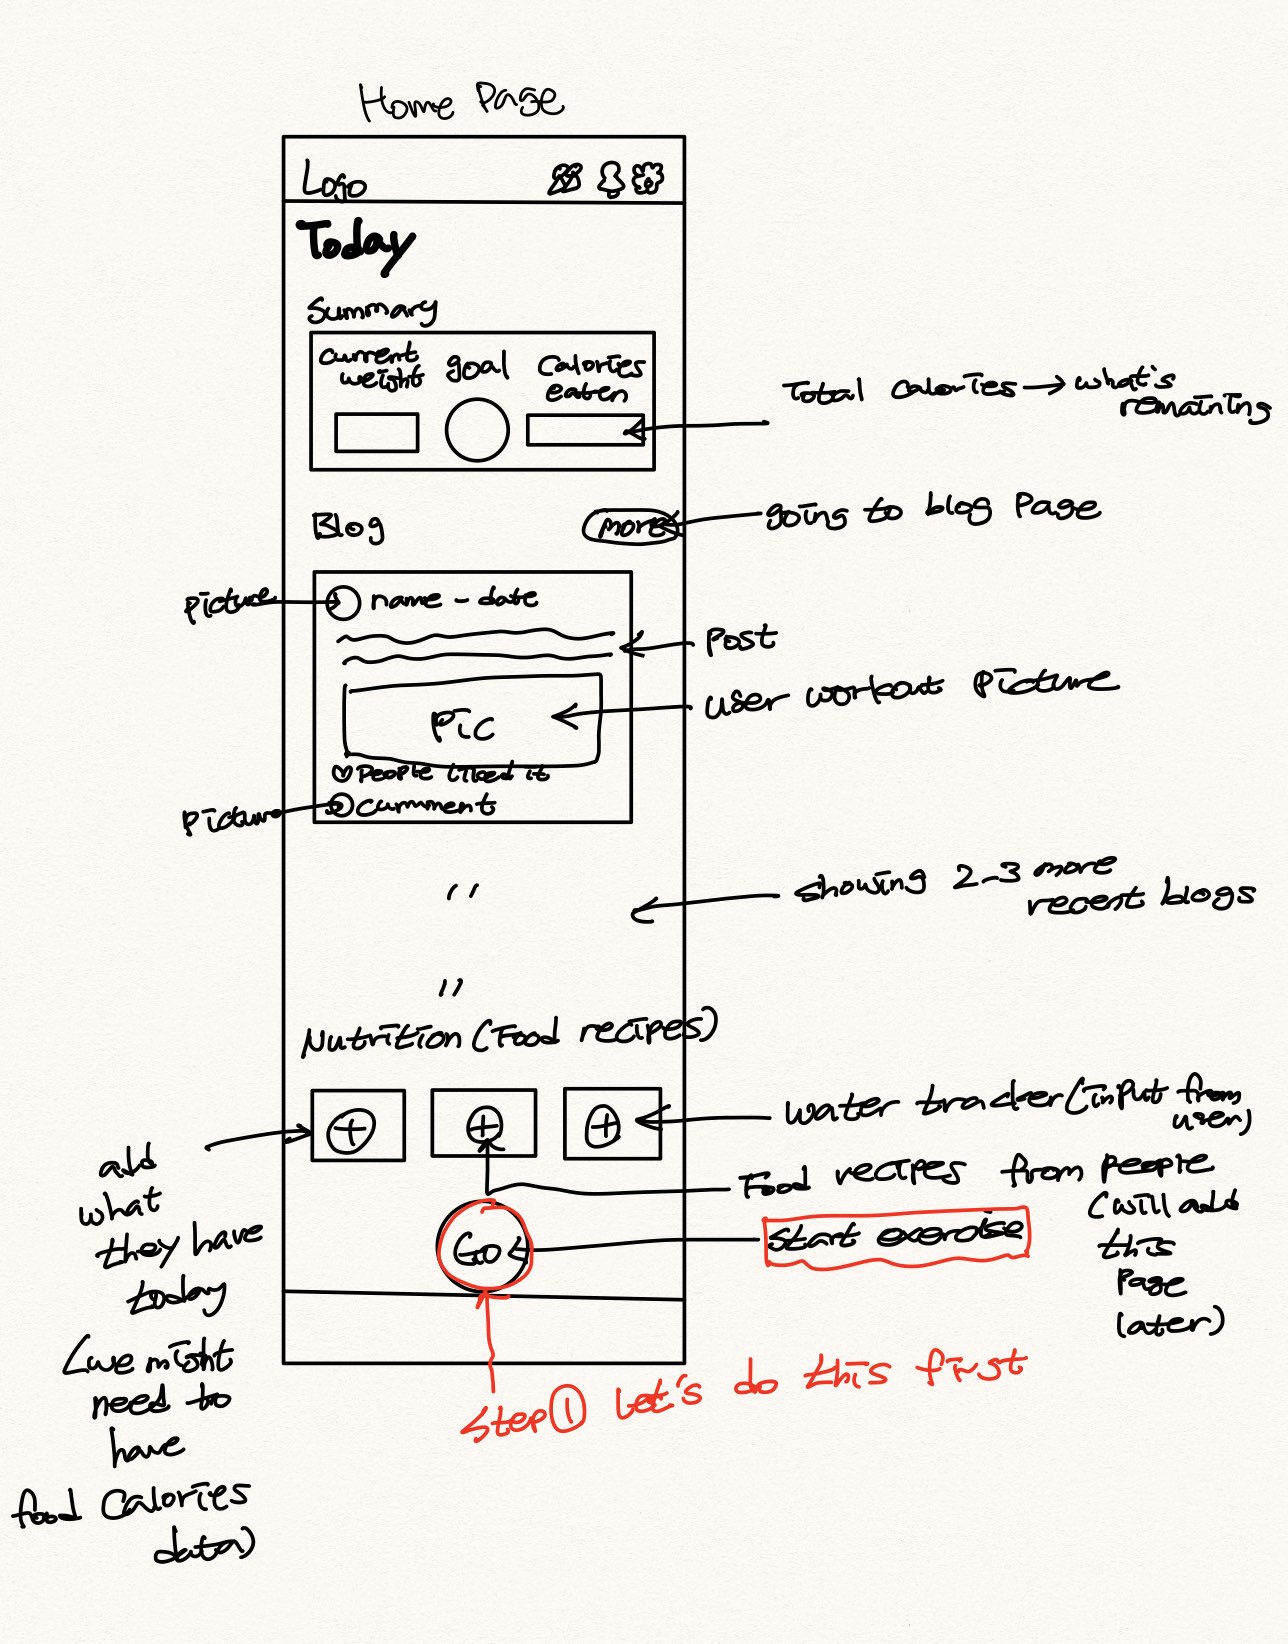 Home Page
Logo
Today
Summary
current
weight
goal
Calories
eaten
Total Calories → what's
remaining
Blog
more
going to blog Page
Picture
name - date
Post
Pic
user workout Picture
♡ People liked it
Picture
Cumment
" 
showing 2-3 more
recent blogs
"
Nutrition (Food recipes)
+
+
+
water tracker (input from
user)
add
what
they have
today
(we might
need to
have
food Calories
data)
Food recipes from People
(will add
this
Page
later)
Go
start exercise
Step ① Let's do this first